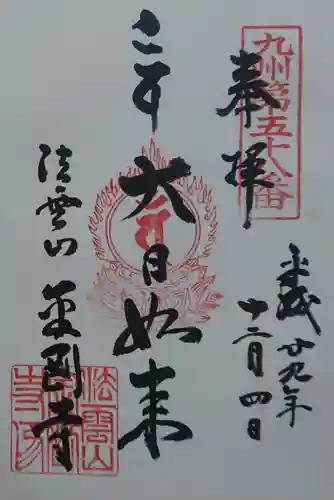 奉拝
九州第五十八番
平成廿九年
十二月四日
大日如来
法雲山 金剛寺
法雲山